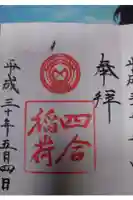 奉拝
四合
稲荷
平成三十年五月四日